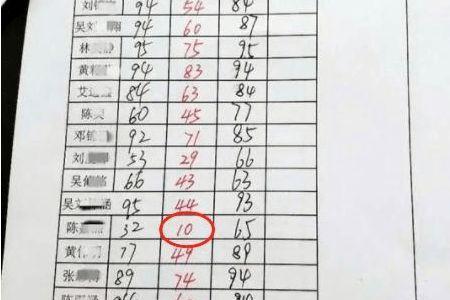 刘 94 54 84
吴刘 94 60 87
林 95 75 95
黄 94 83 94
艾 84 63 84
陈 60 45 77
邓 92 71 85
刘 53 29 66
吴 66 43 63
吴 95 44 93
陈 32 10 65
黄 77 49 89
张 89 74 94
陈